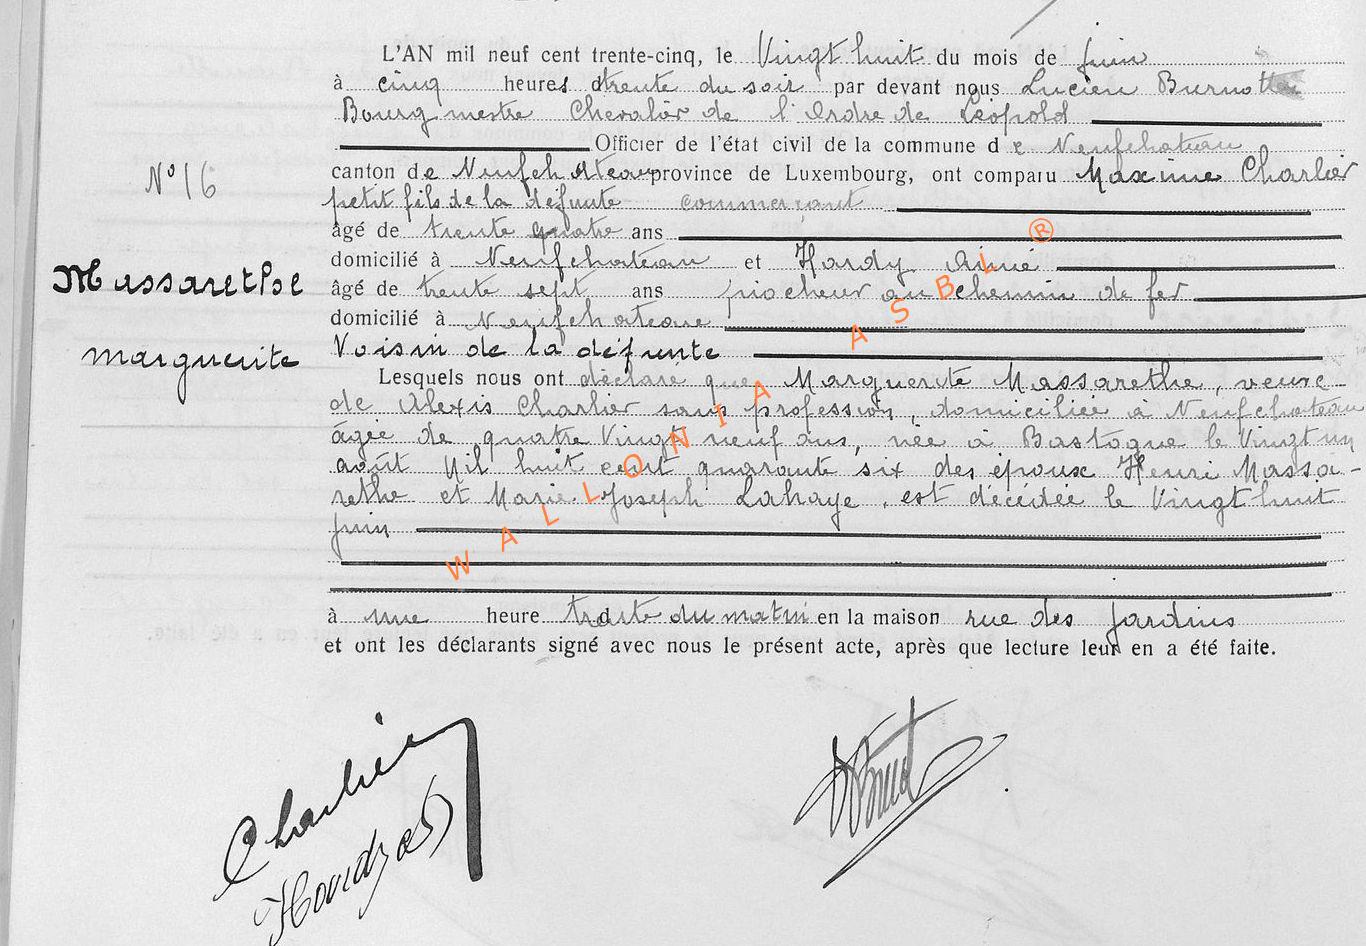 L'AN mil neuf cent trente-cinq, le Vingt huit du mois de juin
à cinq heures trente du soir par devant nous Lucien Burnotte
Bourgmestre Chevalier de l'Ordre de Léopold
Officier de l'état civil de la commune de Neufchateau
N° 16
canton de Neufchateau province de Luxembourg, ont comparu Maxime Charlier
petit fils de la défunte commerçant
âgé de trente quatre ans
domicilié à Neufchateau et Hardy Aimé
Massarethe
âgé de trente sept ans piocheur au chemin de fer
domicilié à Neufchateau
marguerite
Voisin de la défunte
Lesquels nous ont déclaré que Marguerite Massarethe, veuve
de Alexis Charlier sans profession, domiciliée à Neufchateau
âgée de quatre Vingt neuf ans, née à Bastogne le Vingt un
août Mil huit cent quarante six des époux Henri Massa-
rethe et Marie Joseph Lahaye, est décédée le Vingt huit
juin
à une heure trente du matin en la maison rue des Jardins
et ont les déclarants signé avec nous le présent acte, après que lecture leur en a été faite.
WALLONIA ASBL ®
Charlier